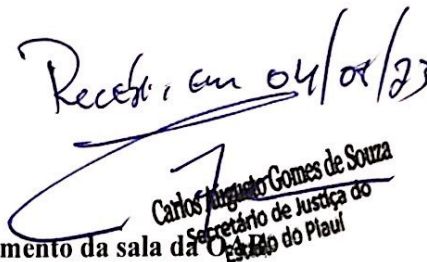 Recebi, em 04/08/23
Carlos Augusto Gomes de Souza
Secretário de Justiça do
Estado do Piauí
mento da sala da OAB